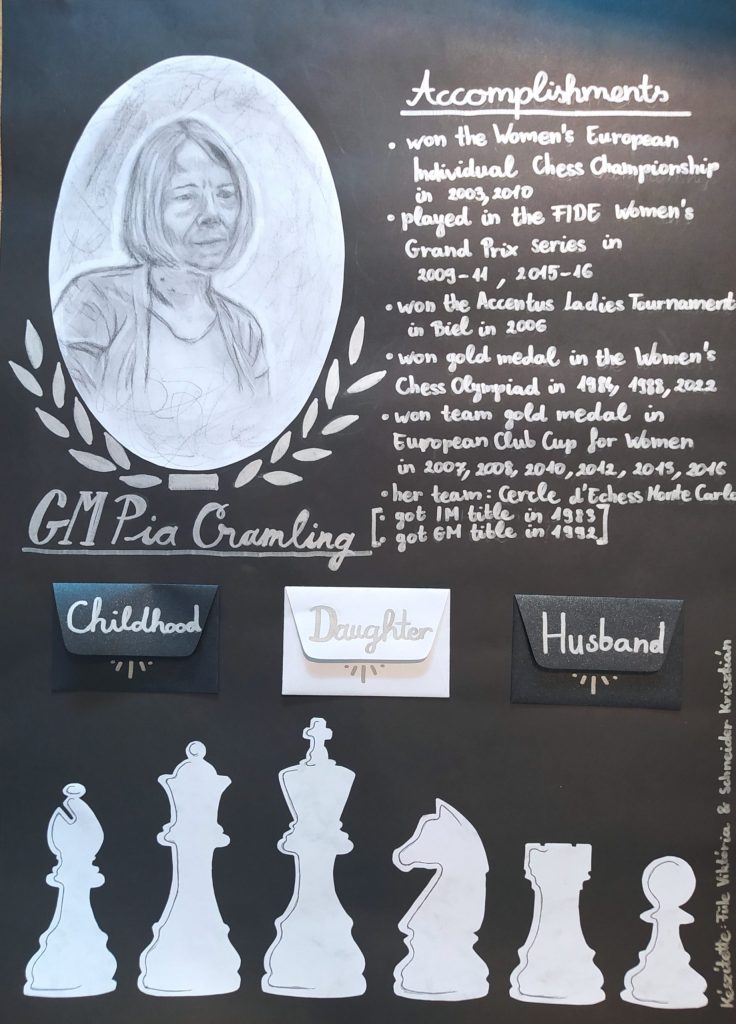 Accomplishments
• won the Women's European
Individual Chess Championship
in 2003, 2010
• played in the FIDE Women's
Grand Prix series in
2009-11, 2015-16
• won the Accentus Ladies Tournament
in Biel in 2006
• won gold medal in the Women's
Chess Olympiad in 1984, 1988, 2022
• won team gold medal in
European Club Cup for Women
in 2007, 2008, 2010, 2012, 2013, 2016
• her team: Cercle d'Echess Monte Carlo
[• got IM title in 1983
• got GM title in 1992]
GM Pia Cramling
Childhood
Daughter
Husband
Készítette: Füle Viktória & Schneider Krisztián